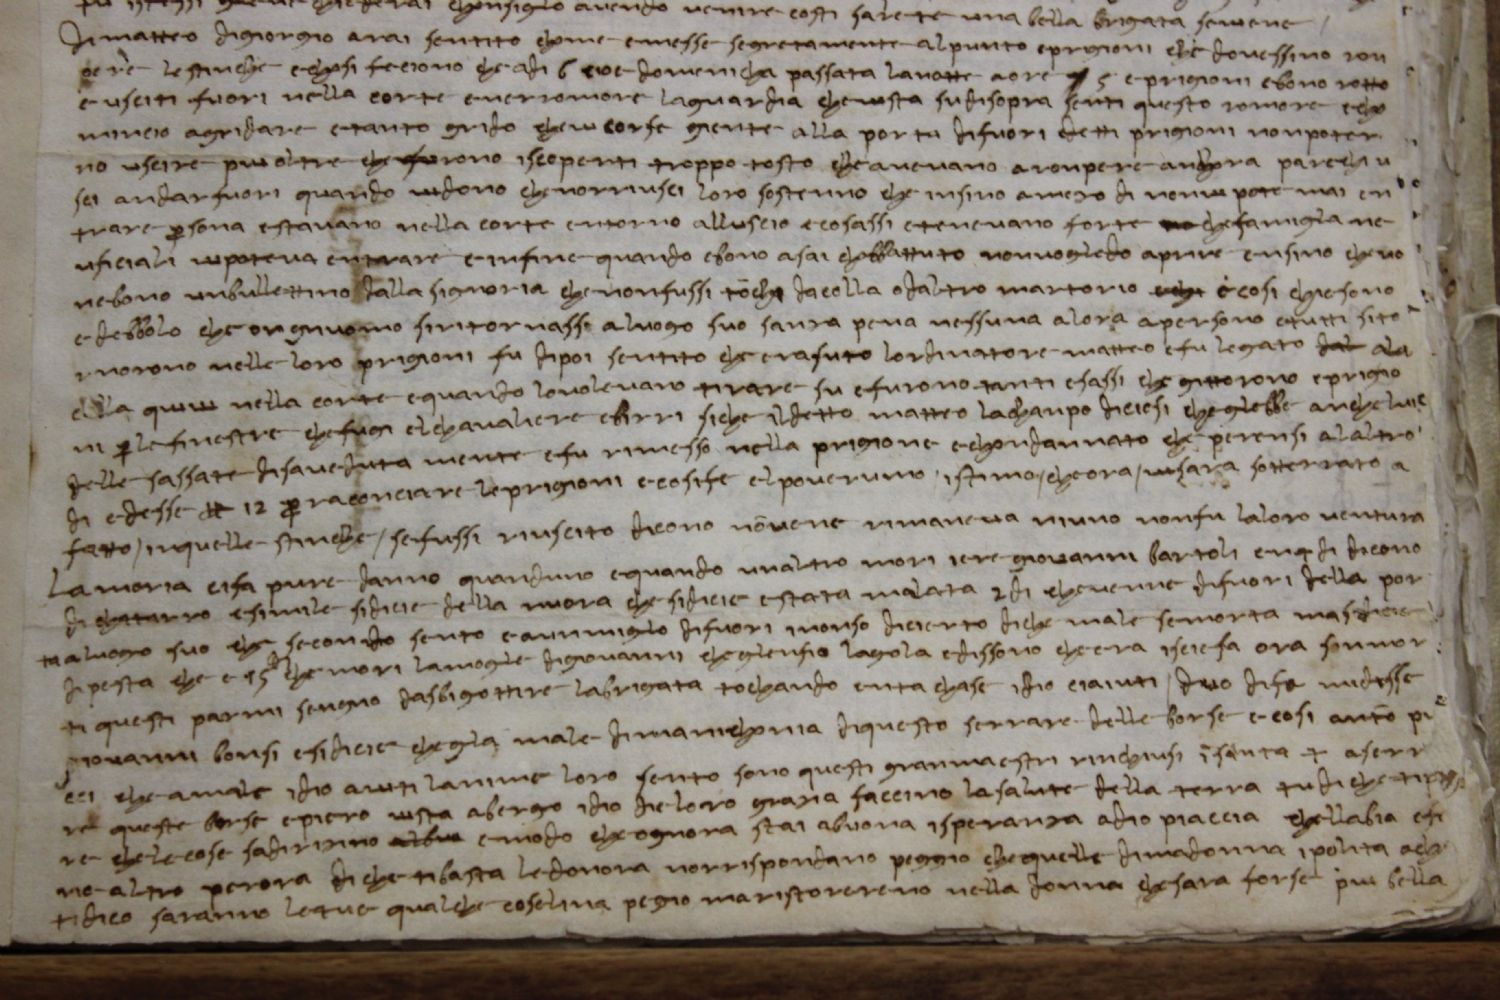 tu istessi chonsiglio avendo venire costi sarete una bella brigata sevvene
dimatteo digiorgio arai sentito chome emesse segretamente alpunto eprigioni che dovessino ron
pere lestinche echosi feciono che adi 6 domenicha passata lanotte aore 5 eprigioni ebono rotto
e usciti fuori nella corte everromore laguardia chevvsta sudisopra senti questo romore echo
mincio agridare etanto grido chevvcorse giente alla porta difuori detti prigioni nonpoter
no uscire piu oltre che furono iscoperti troppo tosto che avevano aronpere anchora parechi u
sci andarfuori quando vidono chenorriusci loro sostenno che insino amezo di nonvi pote mai en
trare persona estavano nella corte entorno alluscio ecosassi etenevano forte chefamigla ne
uficiali vipoteva entrare einfine quando ebono asai chonbattuto nonvogliendo aprire ensino cheno
nebono unbullettino dalla signoria chenonfussi tocho dacolla odaltro martorio ecosi chiesono
edebbolo che ongniuomo siritornassi aluogo suo sanza pena nessuna alora apersono etutti sito
rnorono nelle loro prigioni fu dipoi sentito che erasuto lordinatore matteo efu legato ala
colla quivi nella corte equando lovolevano tirare su efurono tanti esassi che gittorono eprigio
ni per lefinestre chefugi elchavaliere ebirri siche ildetto matteo lachanpo diciesi chegliebbe anchelui
delle sassate disavedutamente efu rimesso nella prigione echondannato che perensi alaltro
di edesse 12 per raconciare leprigioni ecosife elpoverino istimo cheora visara sotterrato a
fatto inquelle stinche sefussi riuscito dicono nonvene rimaneva niuno nonfu laloro ventura
Lamoria cifa pure danno quanduno equando unaltro mori iere giovanni bartoli en 4 di dicono
di chatarro esimile sidicie della nuora che sidicie estata malata 2 di chevenne difuori della por
ta aluogo suo che secondo sento eaunmiglio difuori nonso dicierto diche male semorta masidicie
dipesta che e 15 di chemori lamogle digiovanni che glienfio lagola edissono cheera isciesa ora sonmor
ti questi parmi sengno dasbigottire labrigata tochando enta chase idio ciaiuti duo dise midisse
giovanni bonsi esidicie chegla male dimaninchonia diquesto serrare delle borse ecosi antonio pu
cci cheamale idio aiuti lanime loro sento sono questi granmaestri rinchiusi insanta + aserr
re queste borse epiero vista abergo idio dieloro grazia faccino lasalute della terra tudiche
re chelecose sadirizino emodo cheognora stai abuona isperanza adio piaccia chellabia efi
ne altro perora diche tibasta ledonora norrispondano peggio chequelle dimadonna ipolita ach
tidico saranno letue qualche coselina pegio maristorereno nella donna chesara forse piu bella